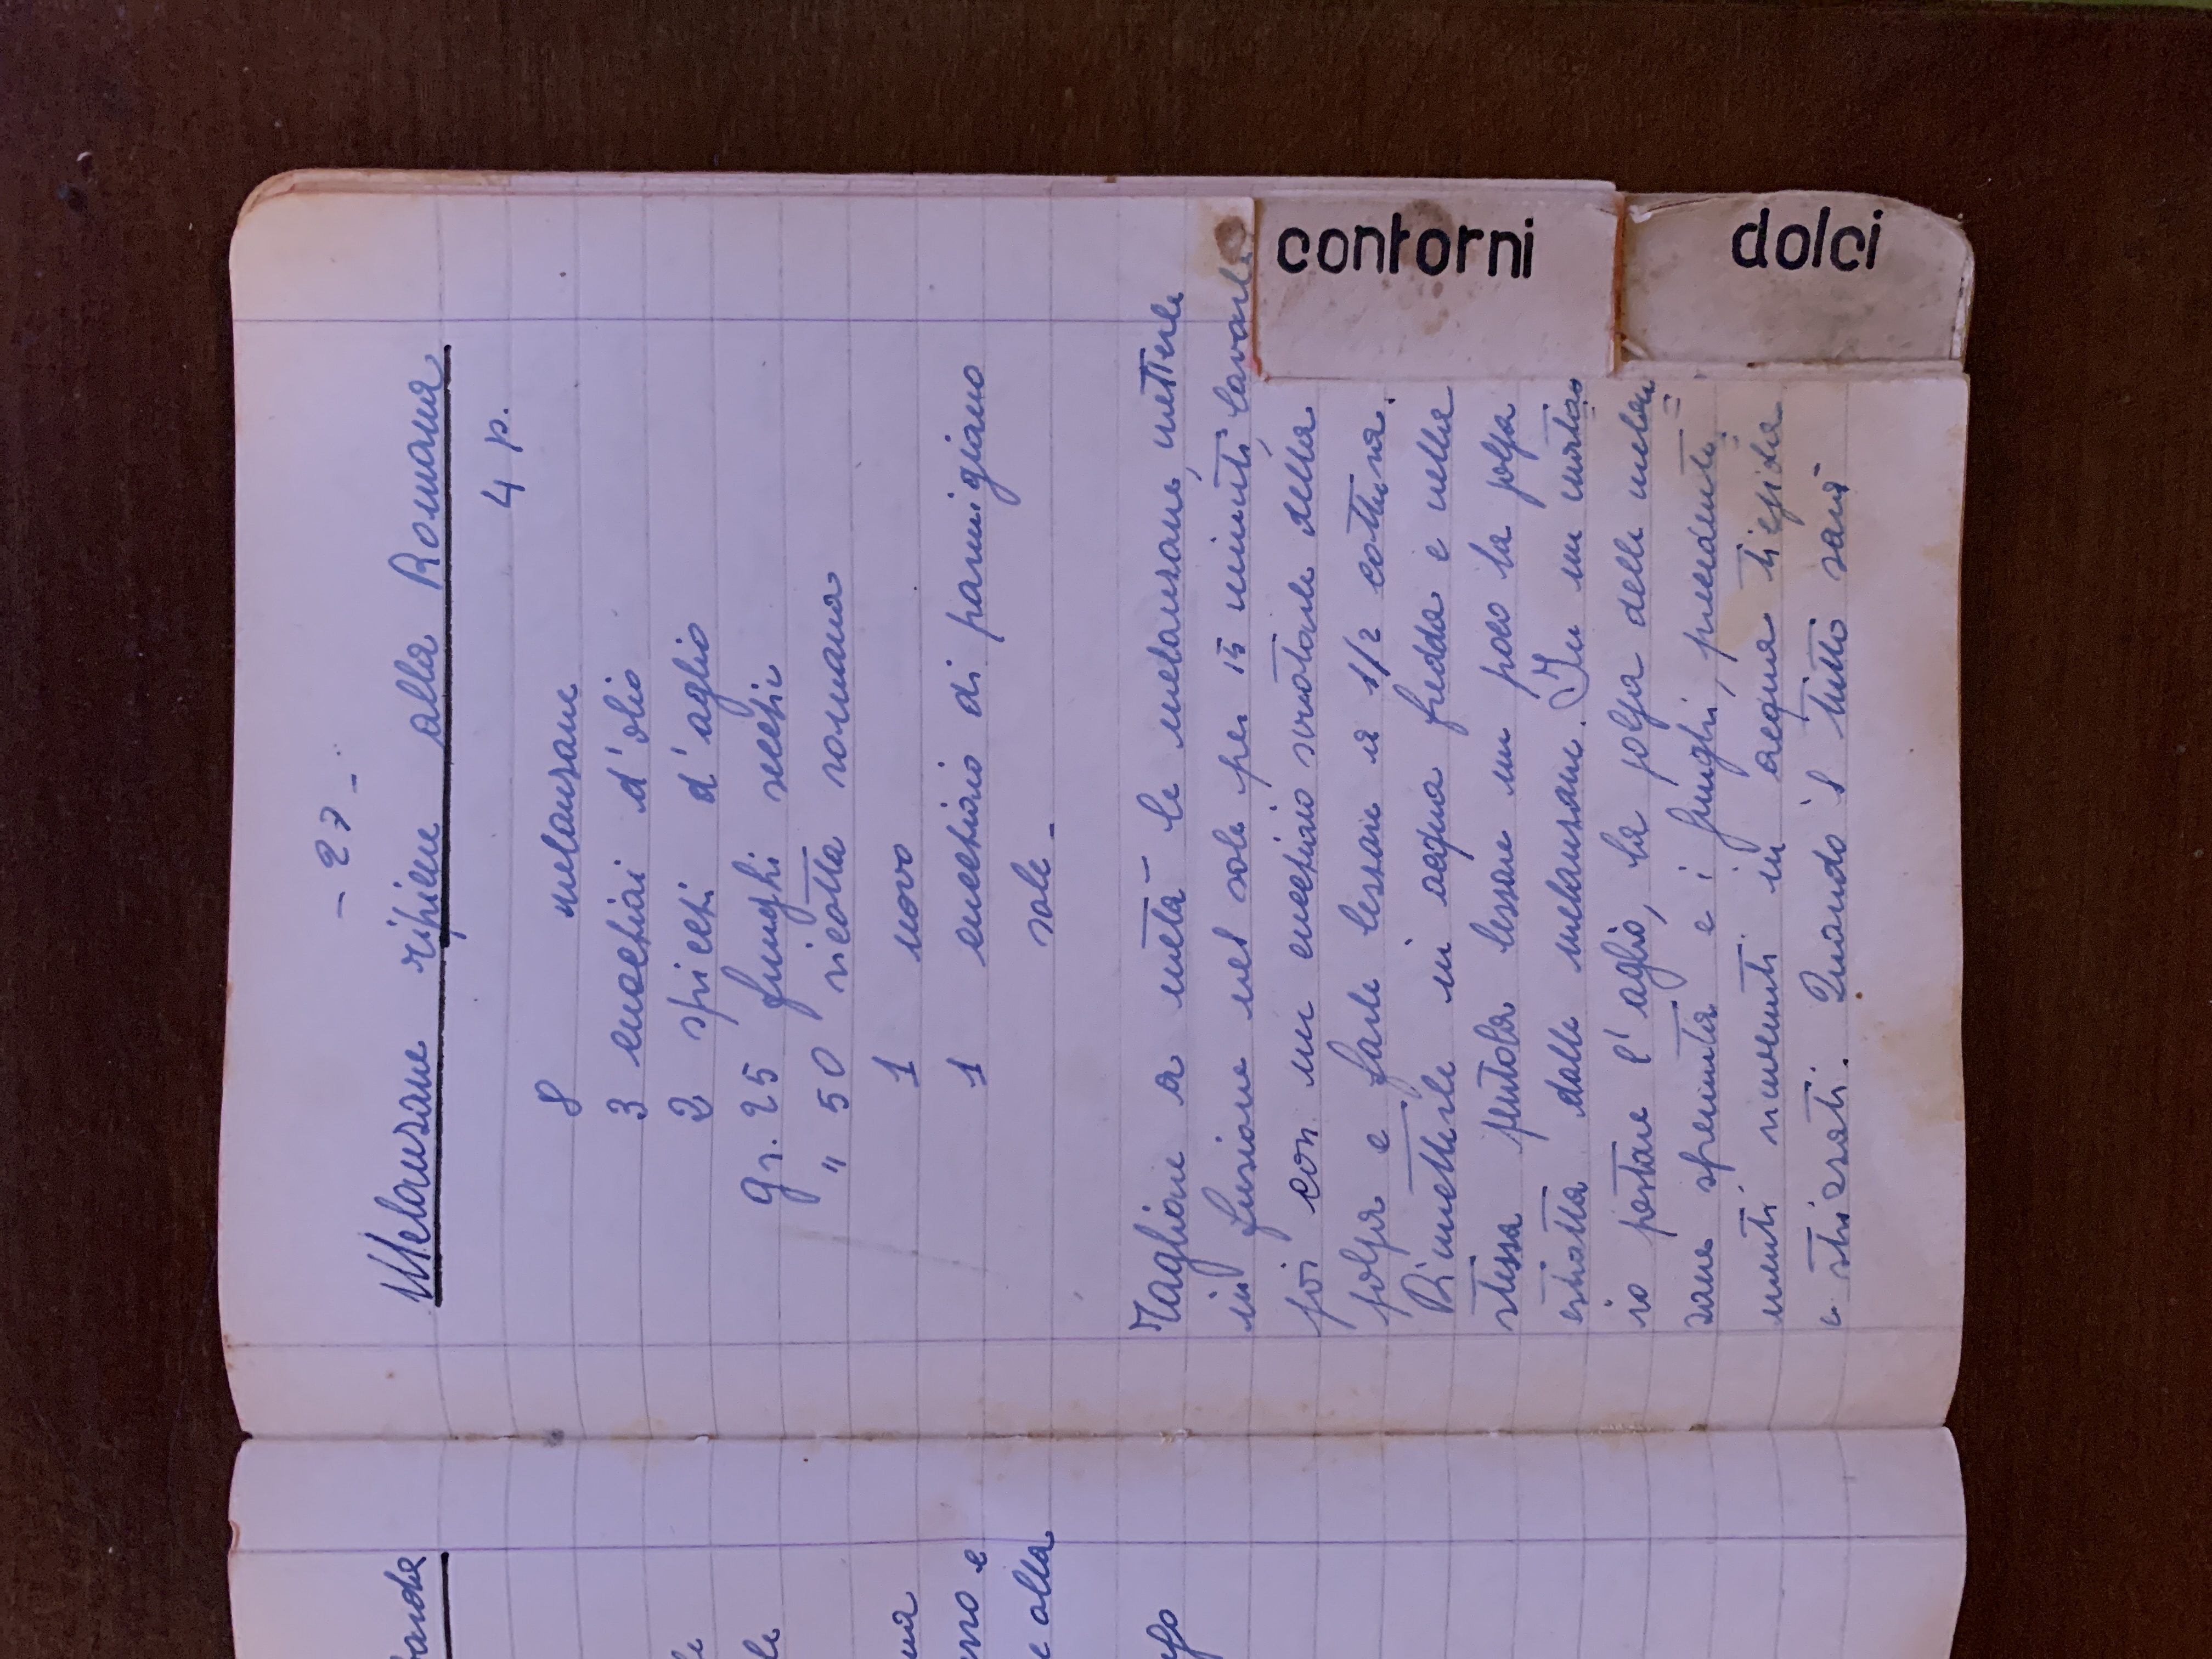 barda
le
le
na
rro e
e alla
ugo
- 27 -
Melanzane ripiene alla Romana
4 p.
8 melanzane
3 cucchiai d'olio
2 spicchi d'aglio
Gr. 25 funghi secchi
" 50 ricotta romana
1 uovo
1 cucchiaio di parmigiano
sale -
Tagliare a metà le melanzane, metterle
in fusione nel sale per 15 minuti, lavarle
poi con un cucchiaio svuotarle della
polpa e farle lessare a 1/2 cottura.
Rimetterle in acqua fredda e nella
stessa pentola lessare un poco la polpa
estratta dalle melanzane. In un morta=
io pestare l'aglio, la polpa delle melan
=
zane spremuta e i funghi, precedente=
menti rinvenuti in acqua tiepida
e strizzati. Quando 'l tutto sarà
contorni
dolci